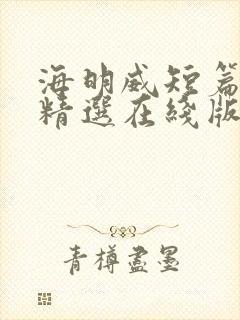 海明威短篇
精選在綫版
青樽盡墨